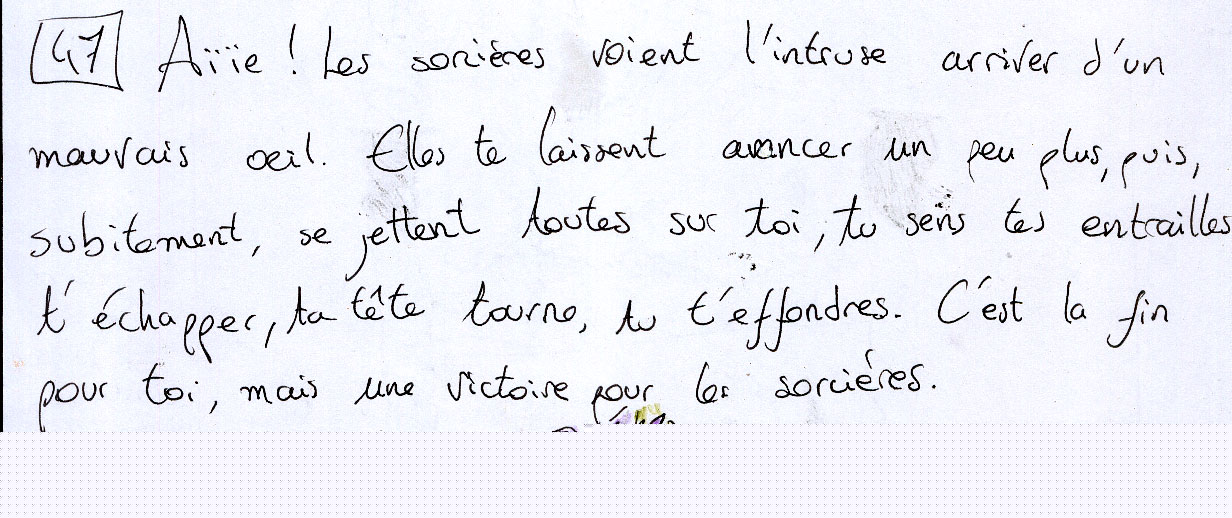 47 Aïïïe ! Les sorières voient l'intruse arriver d'un
mauvais oeil. Elles te laissent avancer un peu plus, puis,
subitement, se jettent toutes sur toi, tu sens tes entrailles
t'échapper, ta tête tourne, tu t'effondres. C'est la fin
pour toi, mais une victoire pour les sorcières.